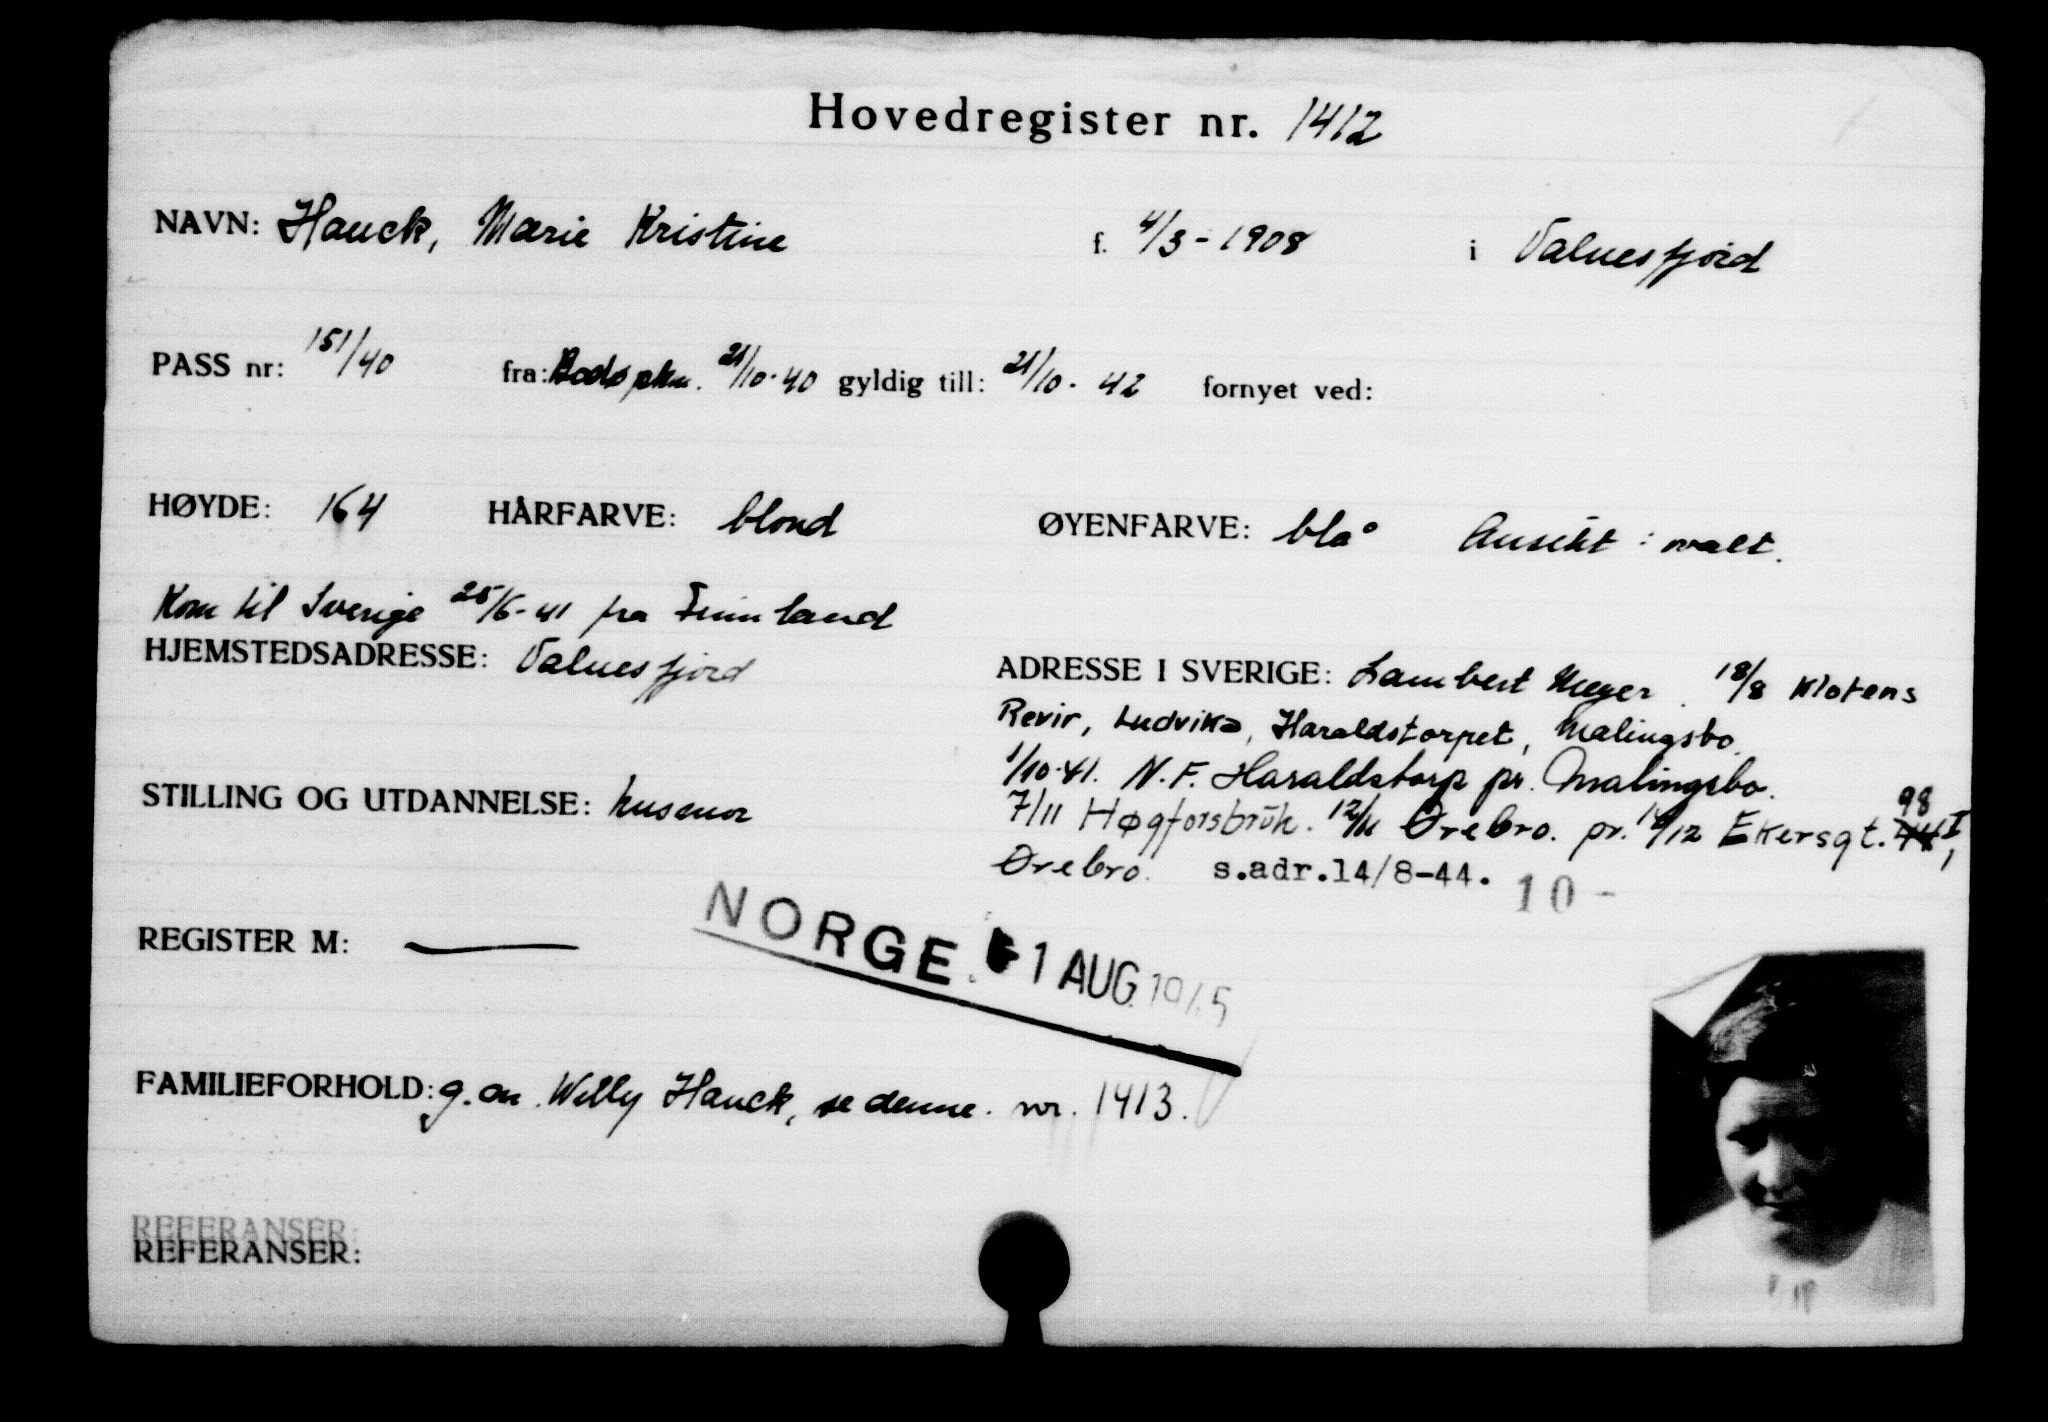 Hovedregister nr. 1412
NAVN: Hauck, Marie Kristine f. 4/3-1908 i Valnesfjord
PASS nr: 151/40 fra: Bodø pkm. 21/10-40 gyldig till: 21/10-42 fornyet ved:
HØYDE: 164 HÅRFARVE: blond ØYENFARVE: blå Ansikt: ovalt.
Kom til Sverige 25/6-41 fra Finnland
HJEMSTEDSADRESSE: Valnesfjord
ADRESSE I SVERIGE: Lambert Meyer. 18/8 Klotens
Revir, Ludvika, Haraldstorpet, Malingsbo.
1/10-41. N.F. Haraldstorp pr. Malingsbo.
7/11 Høgforsbruk. 12/11 Ørebro. pr. 14/12 Ekersgt. 98 I,
Ørebro. s.adr.14/8-44. 10-
STILLING OG UTDANNELSE: husmor
REGISTER M: —
NORGE. -1 AUG. 1945
FAMILIEFORHOLD: g. m. Willy Hauck, se denne. nr. 1413.
REFERANSER:
REFERANSER: